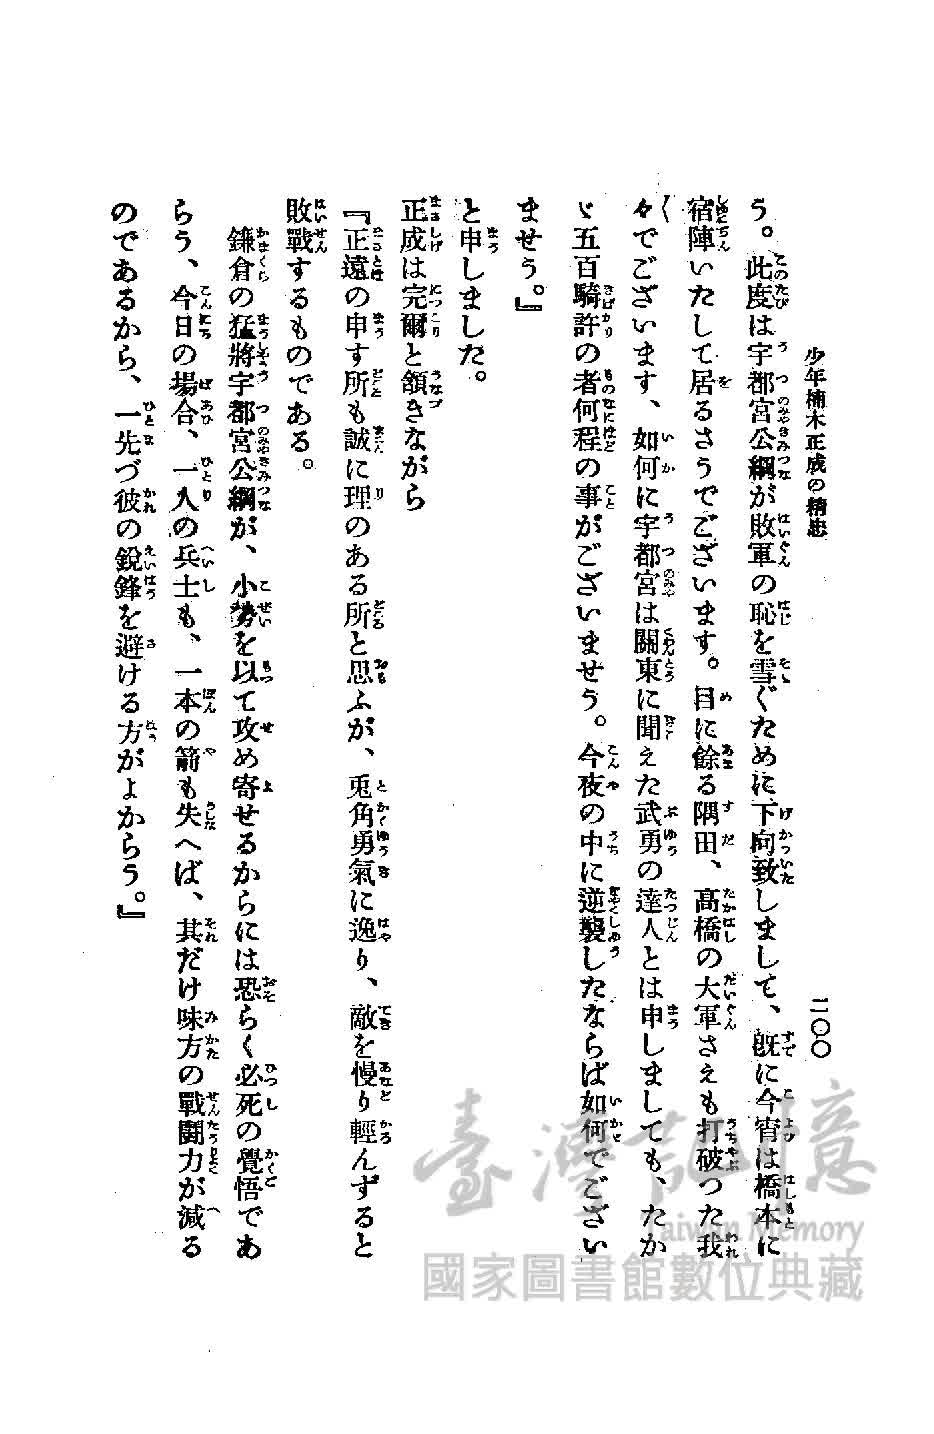 少年楠木正成の精忠
二〇〇
う。此度は宇都宮公綱が敗軍の恥を雪ぐために下向致しまして、既に今宵は橋本に
宿陣いたして居るさうでございます。目に餘る隅田、高橋の大軍さえも打破つた我
々でございます、如何に宇都宮は關東に聞えた武勇の達人とは申しましても、たか
〲五百騎許の者何程の事がございませう。今夜の中に逆襲したならば如何でござい
ませう。』
と申しました。
正成は完爾と頷きながら
『正遠の申す所も誠に理のある所と思ふが、兎角勇氣に逸り、敵を慢り輕んずると
敗戰するものである。
鎌倉の猛將宇都宮公綱が、小勢を以て攻め寄せるからには恐らく必死の覺悟であ
らう、今日の場合、一人の兵士も、一本の箭も失へば、其だけ味方の戰鬪力が減る
のであるから、一先づ彼の銳鋒を避ける方がよからう。』
臺灣記憶
Taiwan Memory
國家圖書館數位典藏